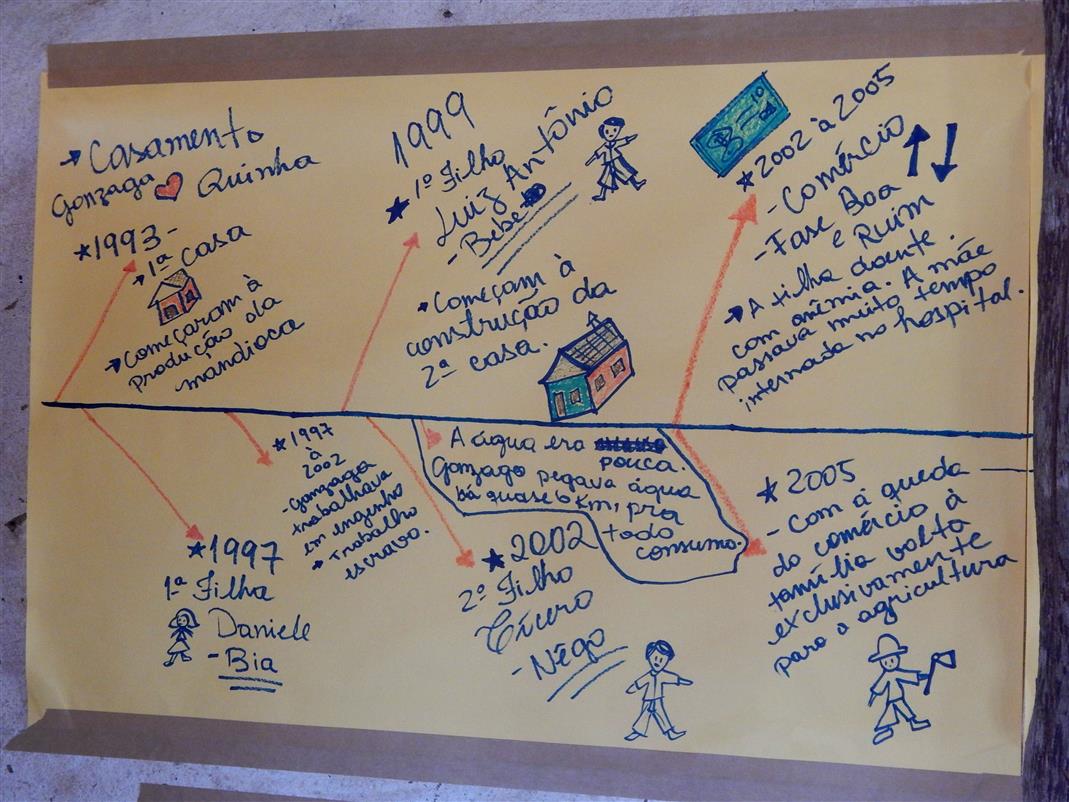 → Casamento
Gonzaga Quinha
★1993-
→ 1ª casa
→ Começaram à
produção da
mandioca
1999
★ 1º Filho
Luiz Antônio
- Bebe
→ Começam à
construção da
2ª casa.
★ 2002 à 2005
- Comércio
- Fase Boa
e Ruim
→ A filha doente
com anêmia. A mãe
passava muito tempo
internada no hospital.
★1997
1ª Filha
Daniele
- Bia
★ 1997
à
2002
- Gonzaga
trabalhava
em engenho
→ Trabalho
escravo.
A água era
pouca.
Gonzaga pegava água
há quase 6 Km, pra
todo
consumo.
★ 2002
2º Filho
Cícero
- Nêgo
★ 2005
- Com à queda
do comércio à
família volta
exclusivamente
para a agricultura